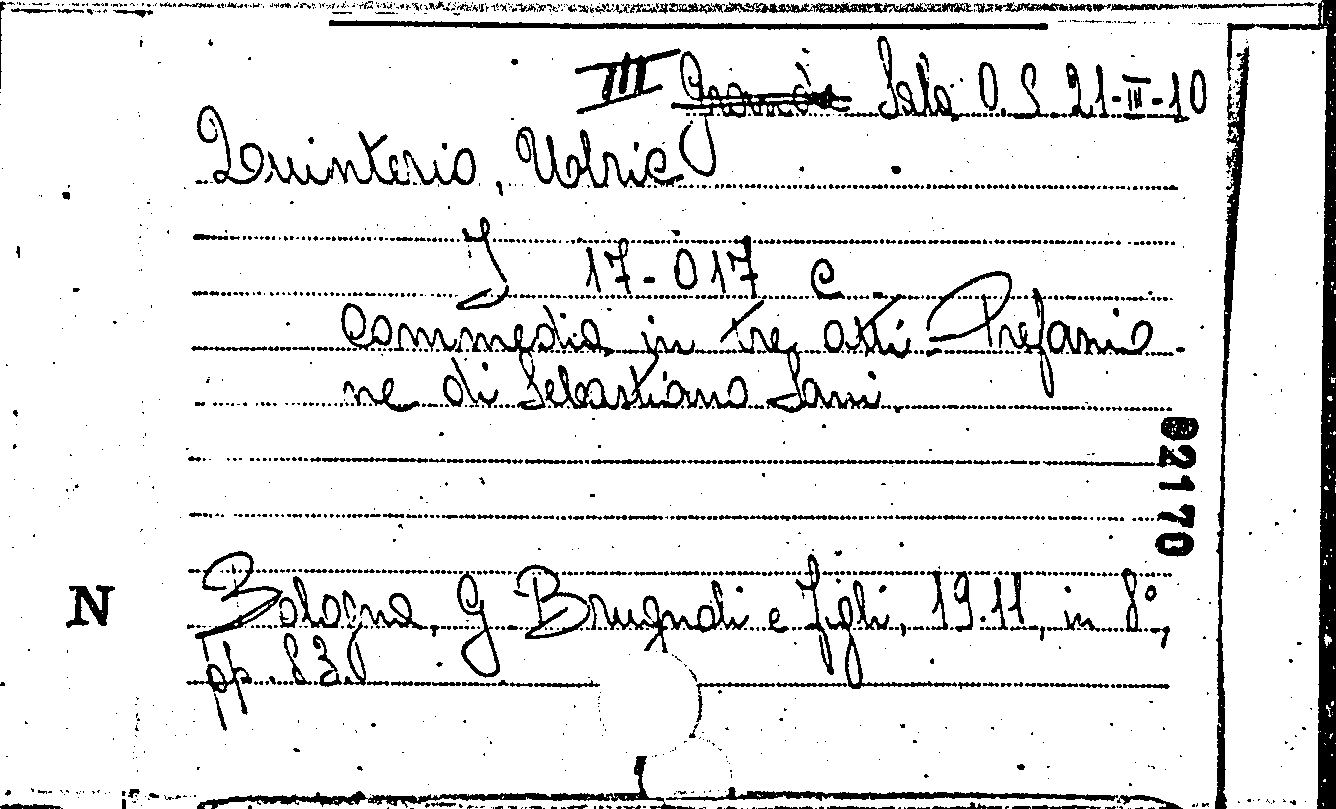 III Sala O. S 21-III-10
Quinterio, Ulrico
I 17-017 C.
commedia in tre atti - Prefazio-
ne di Sebastiano Sani.
02170
N
Bologna, G. Brugnoli e figli, 1911, in 8°,
pp. 83.